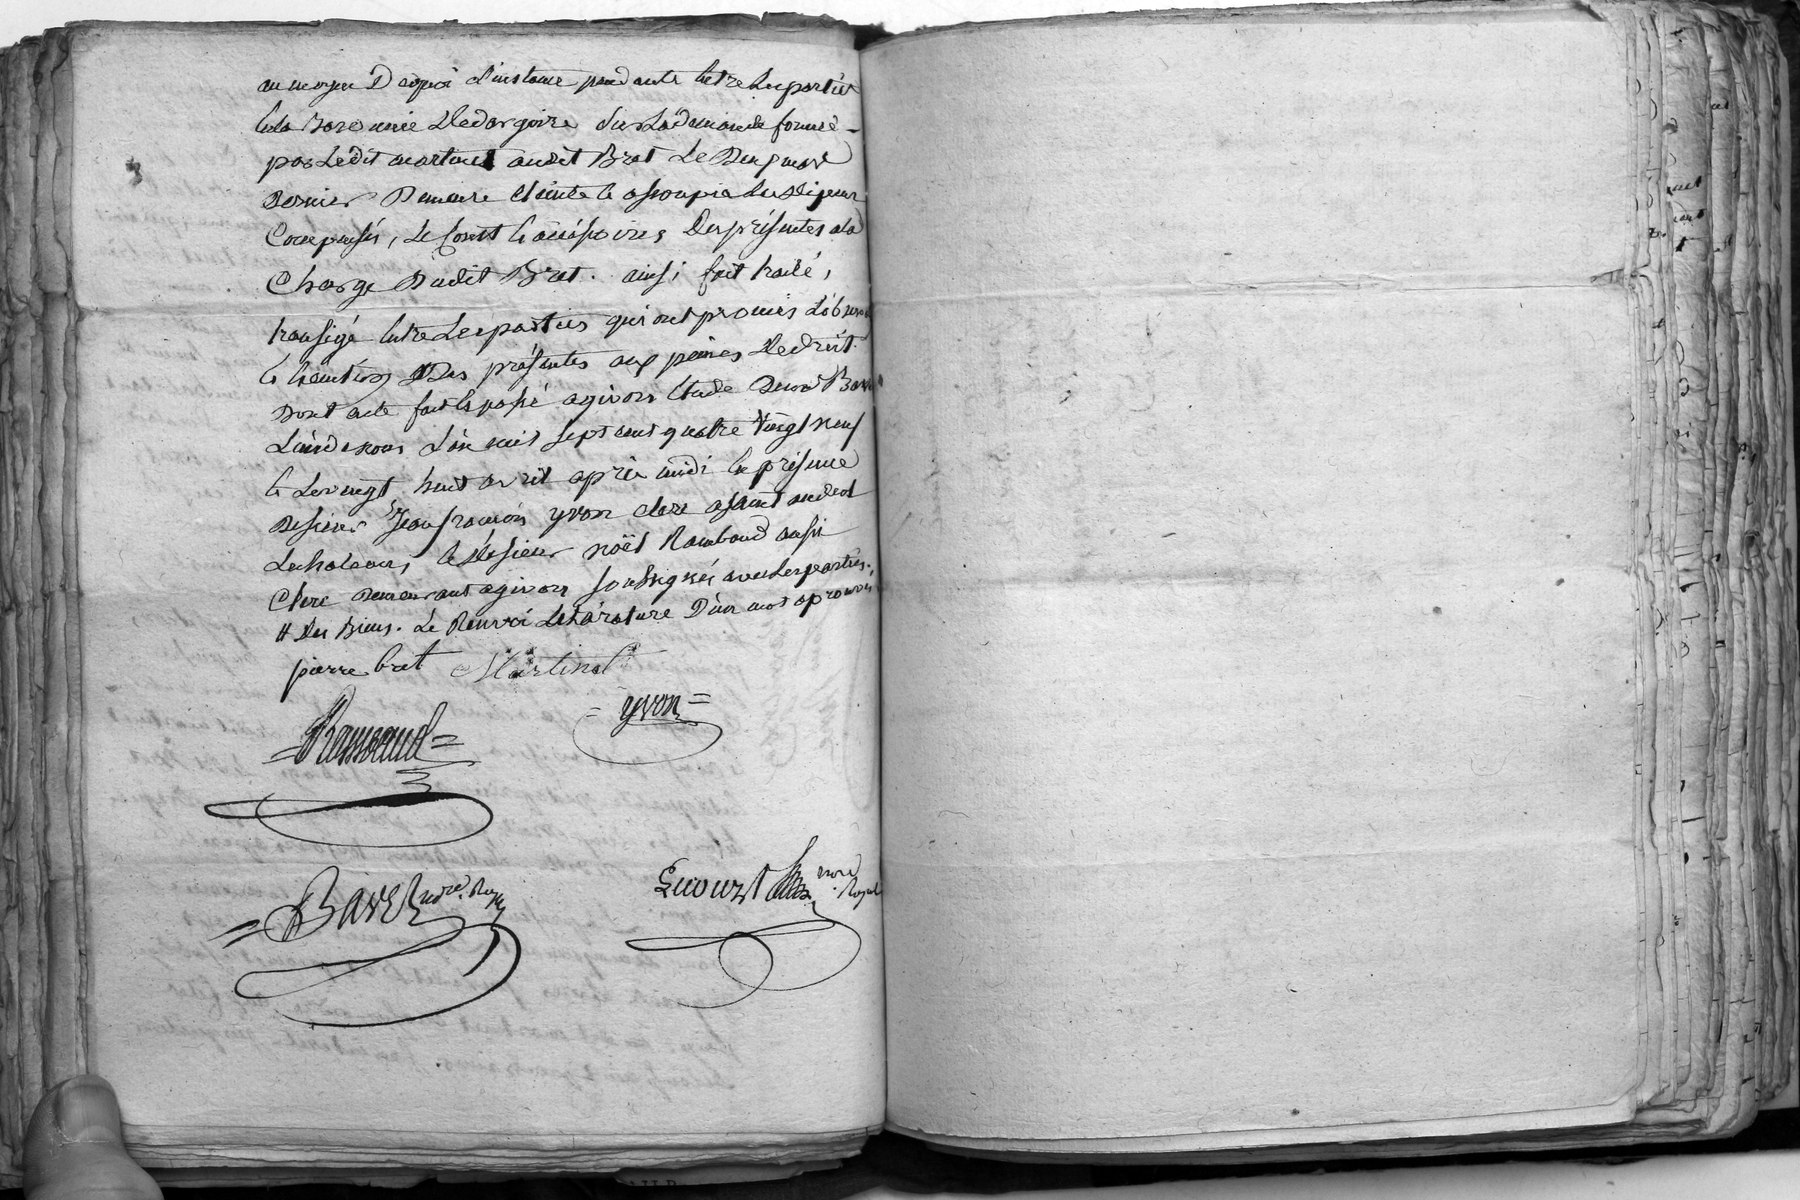 au moyen de quoi l'instance pendante entre les parties
en la Baronnie de dargoire sur la demande formée
par ledit martinet audit Brat le Cinq mars
dernier Demeure eteinte et assoupie les depens
Compensés, le Coust et accessoires des présentes a la
Charge dudit Brat. ainsi fait traité,
transigé entre les parties qui ont promis l'observ
des présentes aux peines de droit
Dont acte fait et passé a givors Etude de me Bar
L'un de nous l'an mil sept cent quatre vingt neuf
et le vingt huit avril après midi en présence
de sieur Jean françois yvon clerc
et de sieur noël Rambaud aussi
Clerc demeurant a givors soussignés avec les parties.
# des Biens. Le Renvoi d'un mot aprouvés
pierre brat Martinet
= yvon =
= Rambaud =
= Barel nore. Roy
nore Royal